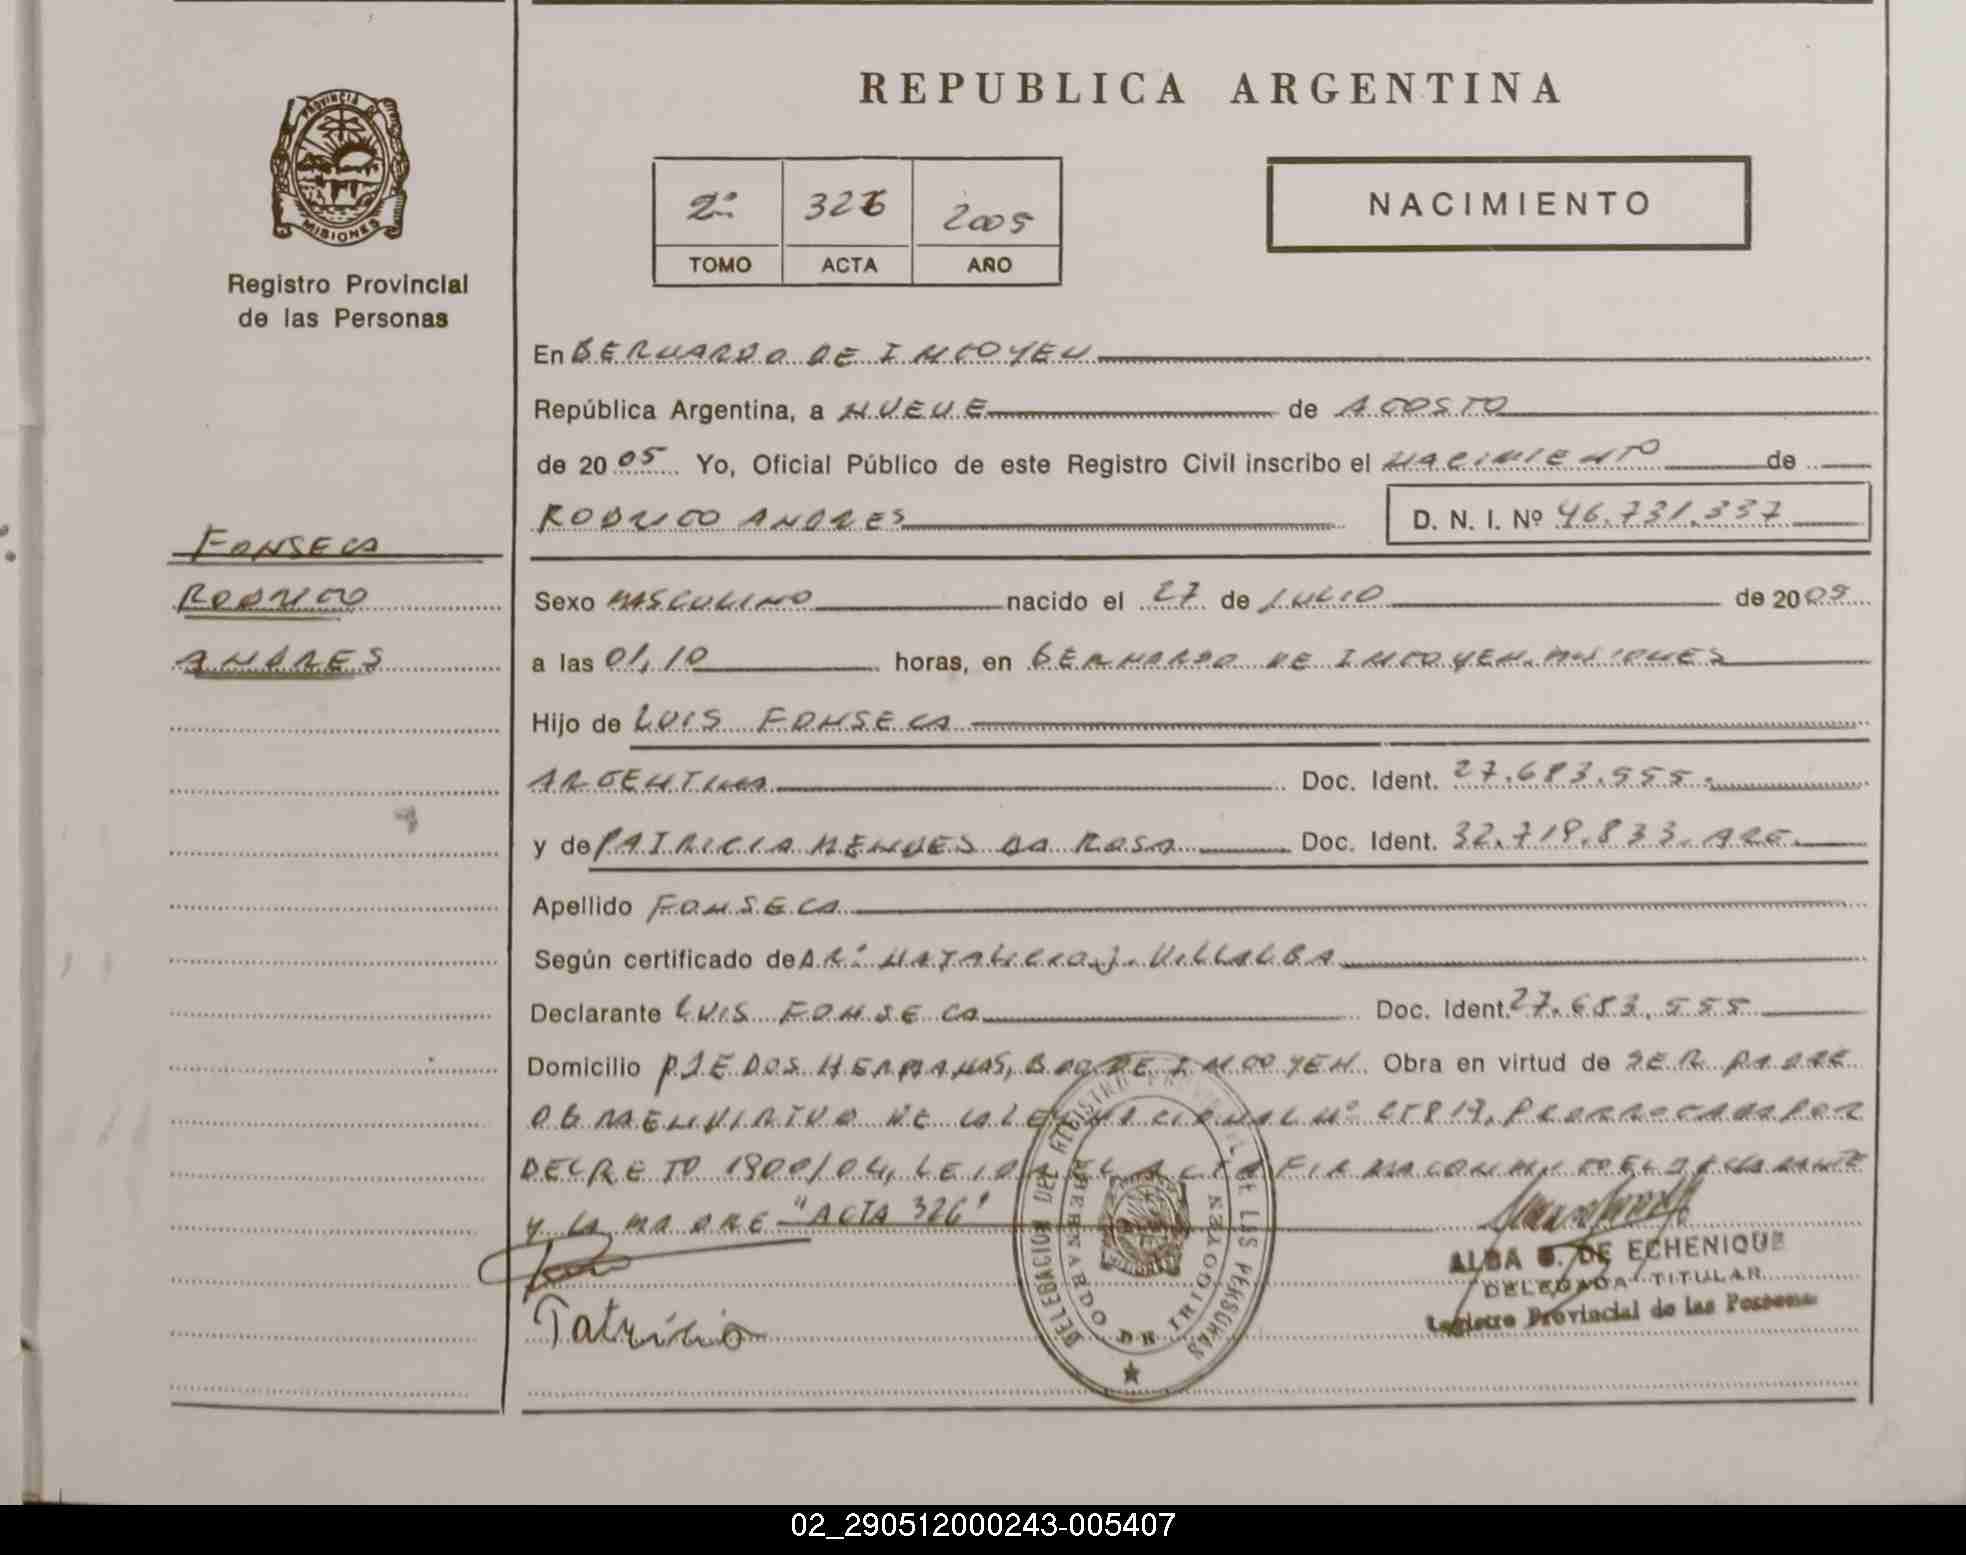 REPUBLICA ARGENTINA
PROVINCIA DE
MISIONES
Registro Provincial
de las Personas
2º 326 2005
TOMO ACTA AÑO
NACIMIENTO
En BERNARDO DE IRIGOYEN
República Argentina, a NUEVE de AGOSTO
de 20 05 Yo, Oficial Público de este Registro Civil inscribo el NACIMIENTO de
RODRIGO ANDRES D. N. I. Nº 46.731.337
FONSECA
RODRIGO
ANDRES
Sexo MASCULINO nacido el 27 de JULIO de 20 05
a las 01,10 horas, en BERNARDO DE IRIGOYEN, MISIONES
Hijo de LUIS FONSECA
ARGENTINA Doc. Ident. 27.683.555.
y de PATRICIA MENDES DA ROSA Doc. Ident. 32.719.833. ARG.
Apellido FONSECA
Según certificado de NATALICIO J. VILLALBA
Declarante LUIS FONSECA Doc. Ident. 27.683.555
Domicilio PJE DOS HERMANAS, BDO DE IRIGOYEN Obra en virtud de SER PADRE
OBRA EN VIRTUD DE LA LEY NACIONAL Nº 25819, PRORROGADA POR
DECRETO 1900/04, LEIDA EL ACTA FIRMA CONMIGO EL DECLARANTE
Y LA MADRE "ACTA 326"
Patricia
DELEGACION DEL REGISTRO PROVINCIAL DE LAS PERSONAS
BERNARDO DE IRIGOYEN
ALBA DE ECHENIQUE
DELEGADA TITULAR
Registro Provincial de las Personas
02_290512000243-005407